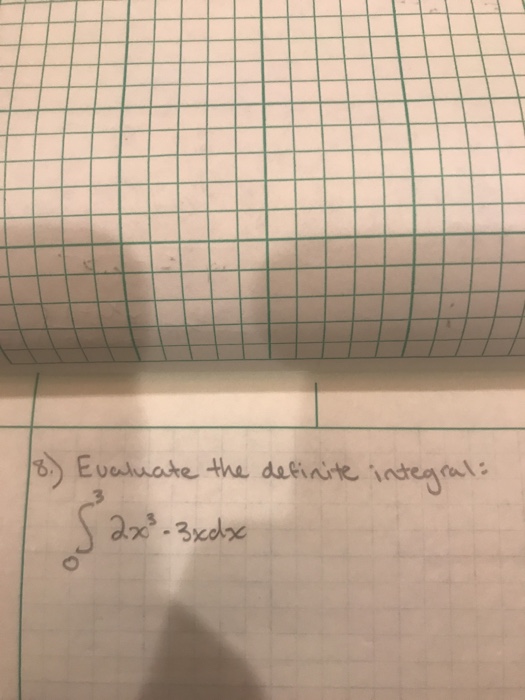 8.) Evaluate the definite integral:
∫₀³ 2x³ - 3xdx